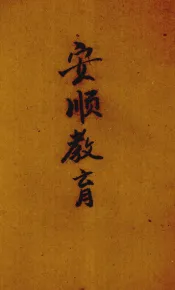 安顺教育